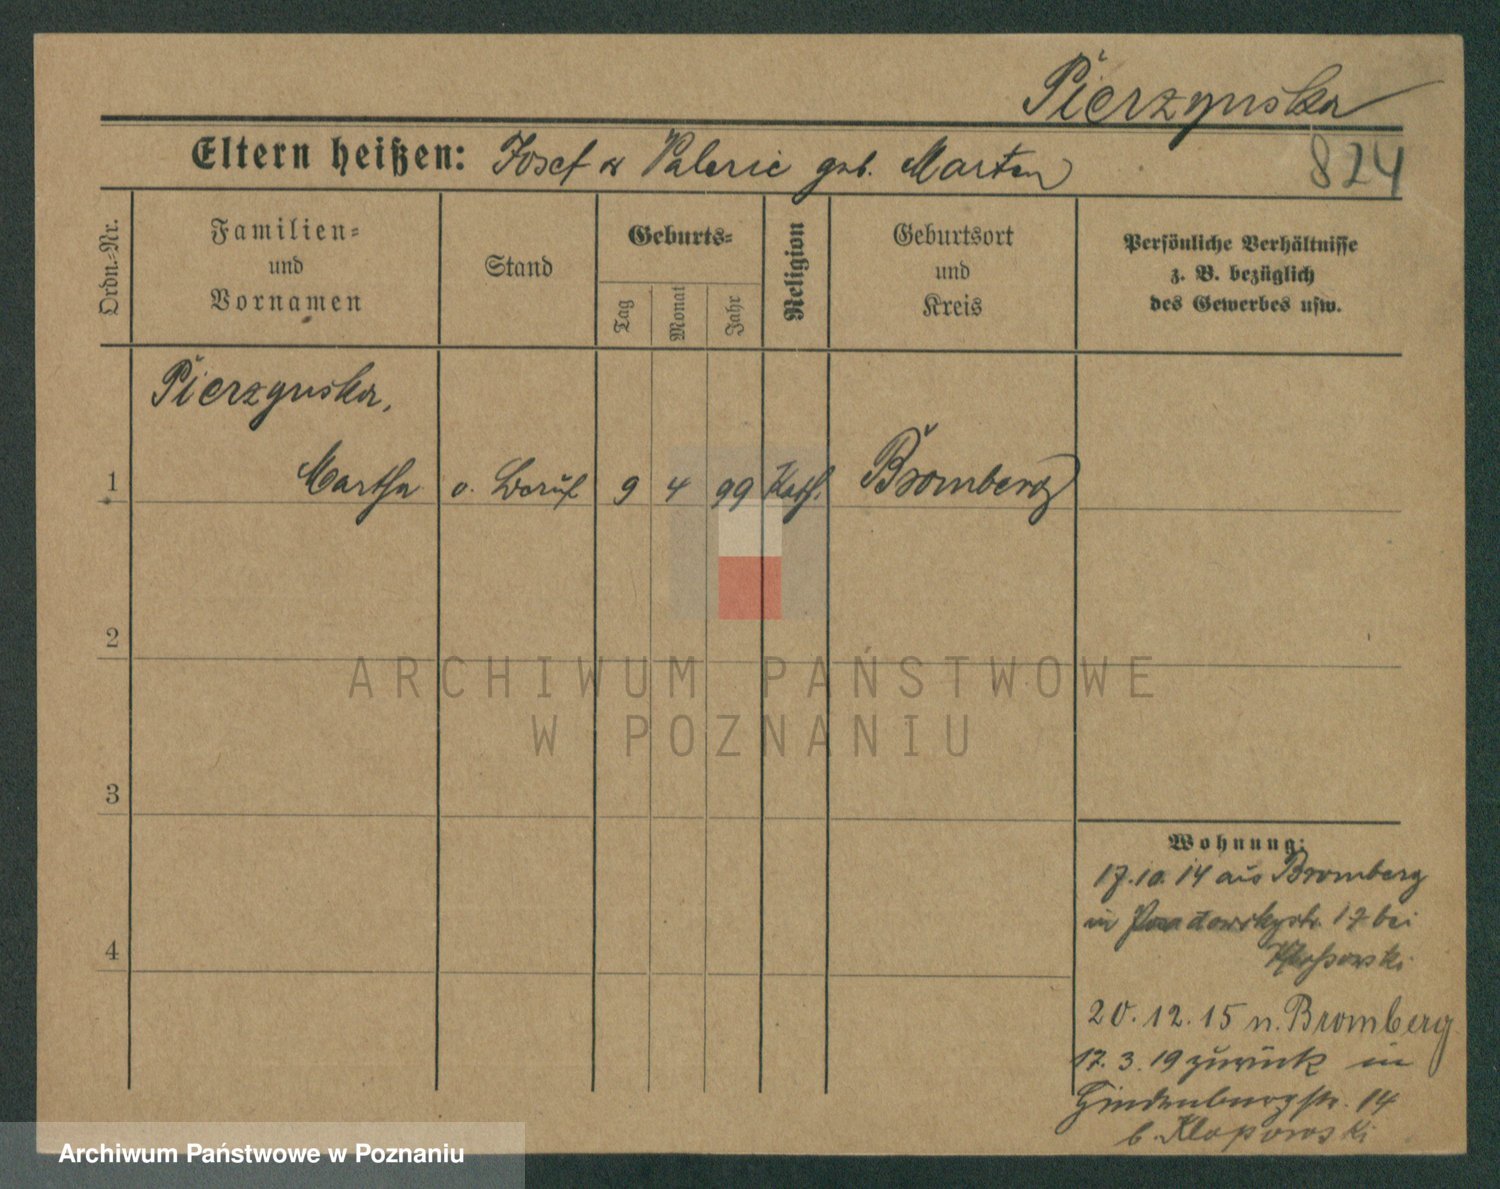 Pierzynska
Eltern heißen: Josef & Valerie geb. Marten
824
Ordn.-Nr.
Familien-
und
Vornamen
Stand
Geburts-
Tag
Monat
Jahr
Religion
Geburtsort
und
Kreis
Persönliche Verhältnisse
z. B. bezüglich
des Gewerbes usw.
Pierzynska,
1 Martha o. Beruf 9 4 99 Kath. Bromberg
2
3
4
Wohnung:
17.10.14 aus Bromberg
in 17 bei
20.12.15 n. Bromberg
17.3.19 zurück in
Hindenburgstr. 14
b. Klopowski
ARCHIWUM PAŃSTWOWE
W POZNANIU
Archiwum Państwowe w Poznaniu